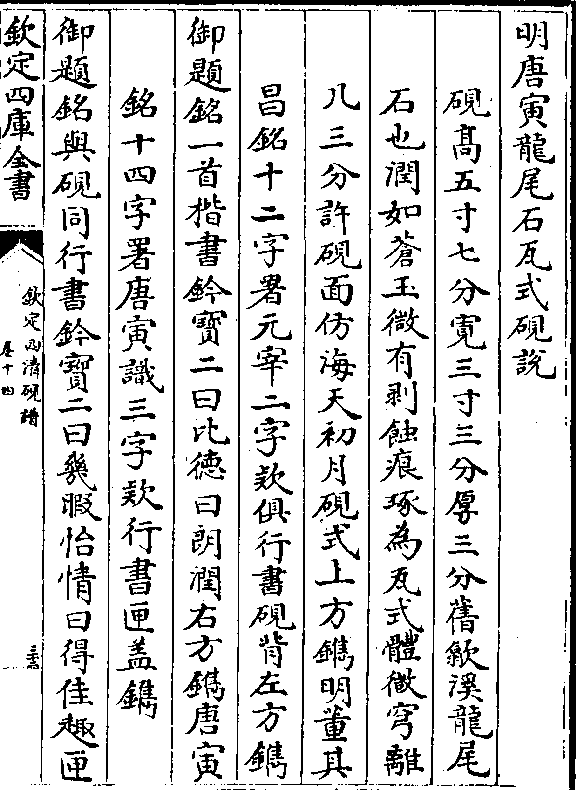 明唐寅龍尾石瓦式硯說
硯高五寸七分寛三寸三分厚三分舊歙溪龍尾
石也潤如蒼玉微有剥蝕痕琢為瓦式體微穹離
几三分許硯面仿海天初月硯式上方鐫明董其
昌銘十二字署元宰二字款俱行書硯背左方鐫
御題銘一首楷書鈐寶二曰比德曰朗潤右方鐫唐寅
銘十四字署唐寅識三字款行書匣盖鐫
御題銘與硯同行書鈐寶二曰幾暇怡情曰得佳趣匣
欽定四庫全書
欽定西清硯譜
卷十四